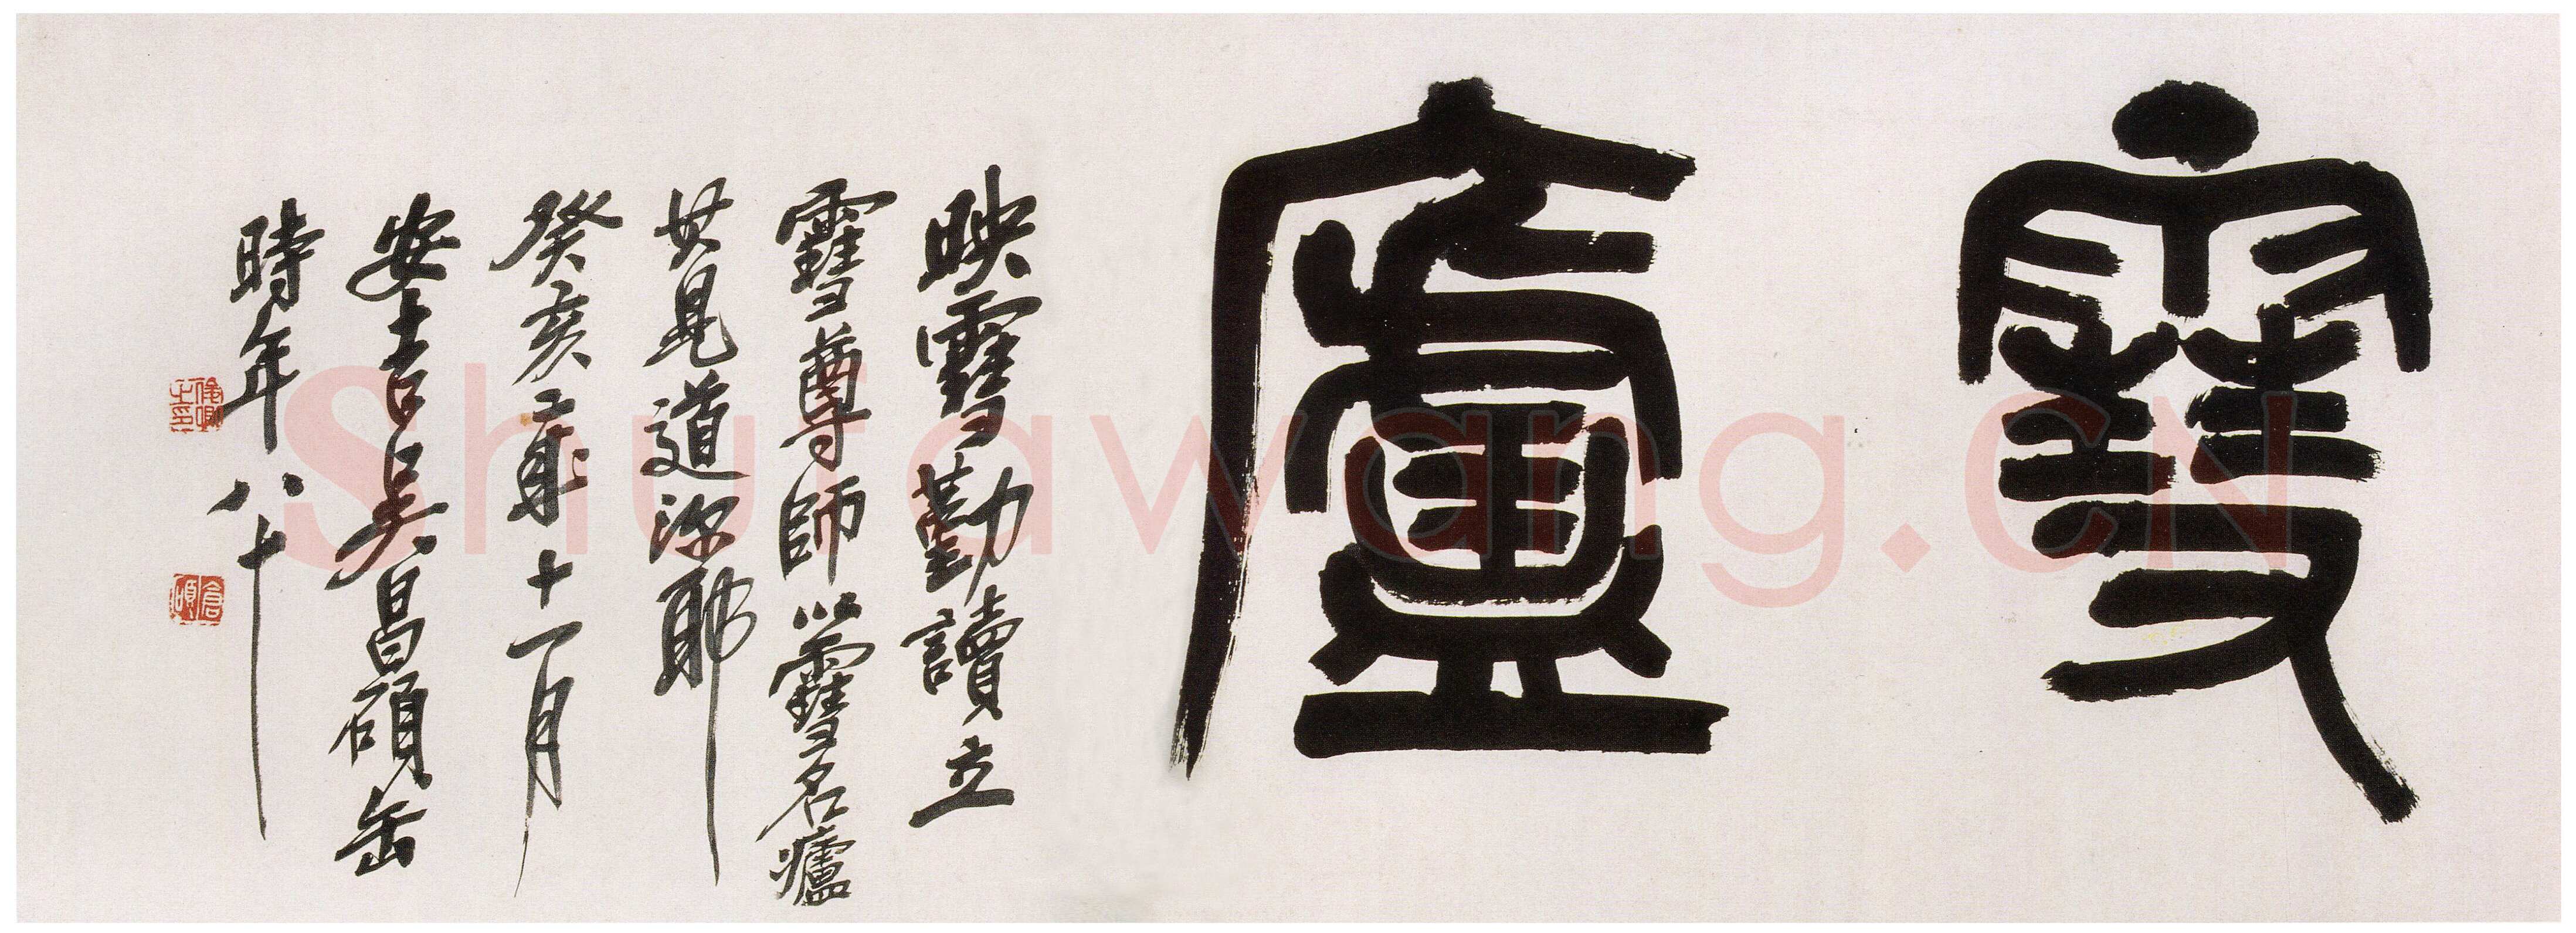 雪廬
映雪勤讀立
雪尊師以雪名廬
其見道深耶
癸亥歲十一月
安吉吳昌碩缶
時年八十
俊卿之印
倉碩
Shufawang.CN